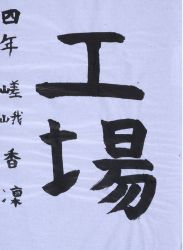 工場
四年 嵯峨香凜